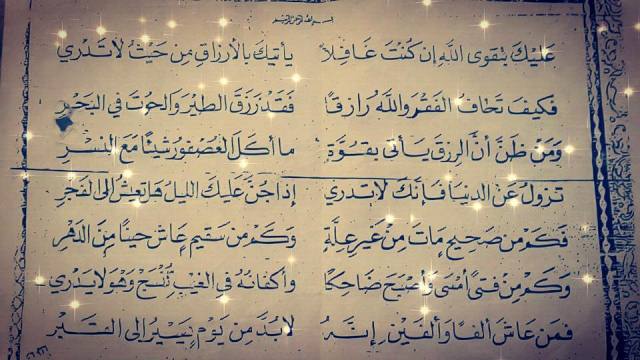 بسم الله الرحمن الرحيم
عَلَيْكَ بِتَقْوى اللهِ إن كُنْتَ غَافِلاً يأتيكَ بالأرزاقِ مِن حَيْثُ لاتَدْرِي
فكَيفَ تَخافُ الفَقْرَ واللهُ رَازقًا فَقَدْ رَزَقَ الطَيْرَ والحُوتَ في البَحْرِ
وَمَنْ ظَنَّ أنَّ الرِزقَ يأتى بقُوَّةٍ ما أكَلَ العُصْفورُ شيئًا مَعَ النِسْرِ
تزولُ عَنِ الدنيَا فَإنَّكَ لاتدري إذا جُنَّ عَليكَ الليلُ هَل تعِيشُ إلى الفَجْرِ
فَكَم مِن صَحِيحٍ مَاتَ مِنْ غَيرِ عِلَّةٍ وَكَم مِن سَقيمٍ عِاشَ حينًا مِنَ الدَهْرِ
وَكَم مِن فَتىً أمْسَى وَأصْبَحَ ضَاحِكًا وأكفانُهُ في الغَيْبِ تُنْسَجُ وَهوَ لايَدْرِي
فمَن عَاشَ ألفًا وَألفَيْنِ إنَّهُ لابُدَّ مِن يَوْمٍ يَسِيرُ إلى القَبْرِ